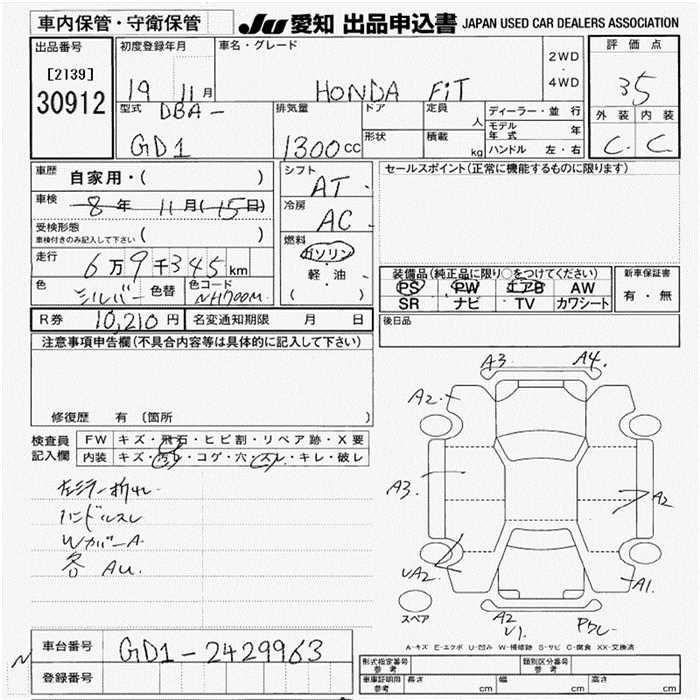 車内保管・守衛保管
JU 愛知 出品申込書 JAPAN USED CAR DEALERS ASSOCIATION
出品番号
[2139]
30912
初度登録年月
19 11月
車名・グレード
HONDA FiT
2WD
・
4WD
評価点
35
外装 内装
C C
型式
DBA-
GD1
排気量
1300cc
ドア
定員
人
形状
積載
kg
ディーラー・並行
モデル年式 年
ハンドル 左・右
車歴
自家用・( )
車検
8年 11月(15日)
受検形態
車検付きのみ記入して下さい ( )
走行
6万9千345km
色
シルバー
色替
色コード
NH700M
シフト
AT
冷房
AC
燃料
ガソリン
軽・油
( )
セールスポイント(正常に機能するものに限ります)
装備品(純正品に限り○をつけてください)
PS PW エアB AW
SR ナビ TV カワシート
新車保証書
有・無
R券 10,210円 名変通知期限 月 日
後日品
注意事項申告欄(不具合内容等は具体的に記入して下さい)
修復歴 有 〔箇所 〕
検査員記入欄
FW キズ・飛石・ヒビ割・リペア跡・X要
内装 キズ・汚レ・コゲ・穴・スレ・キレ・破レ
左ミラー折れ
ハンドルスレ
WカバーA
各 AU.
A3 A4.
A2.
A3
A2
UA2.
A1.
スペア
A2
U1.
A-キズ E-エクボ U-凹み W-補修跡 S-サビ C-腐食 XX-交換済
車台番号 GD1-2429963
N
登録番号
形式指定番号
参考
類別区分番号
参考
車庫証明用
参考
長さ cm 幅 cm 高さ cm